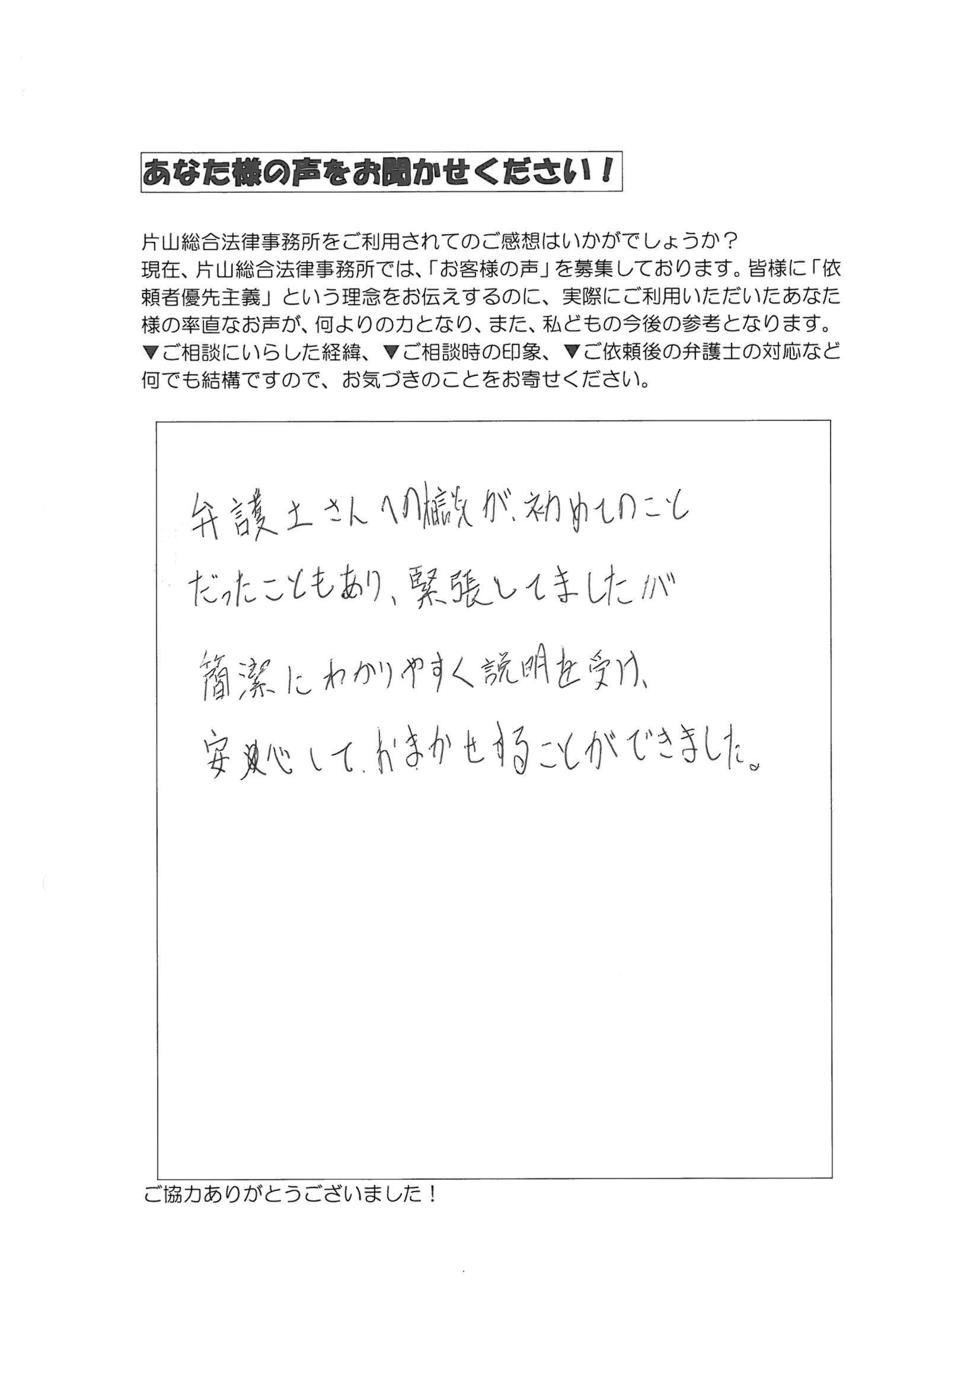 あなた様の声をお聞かせください！
片山総合法律事務所をご利用されてのご感想はいかがでしょうか？
現在、片山総合法律事務所では、「お客様の声」を募集しております。皆様に「依
頼者優先主義」という理念をお伝えするのに、実際にご利用いただいたあなた
様の率直なお声が、何よりの力となり、また、私どもの今後の参考となります。
▼ご相談にいらした経緯、▼ご相談時の印象、▼ご依頼後の弁護士の対応など
何でも結構ですので、お気づきのことをお寄せください。
弁護士さんへの相談が、初めてのこと
だったこともあり、緊張してましたが
簡潔にわかりやすく説明を受け、
安心して、おまかせすることができました。
ご協力ありがとうございました！